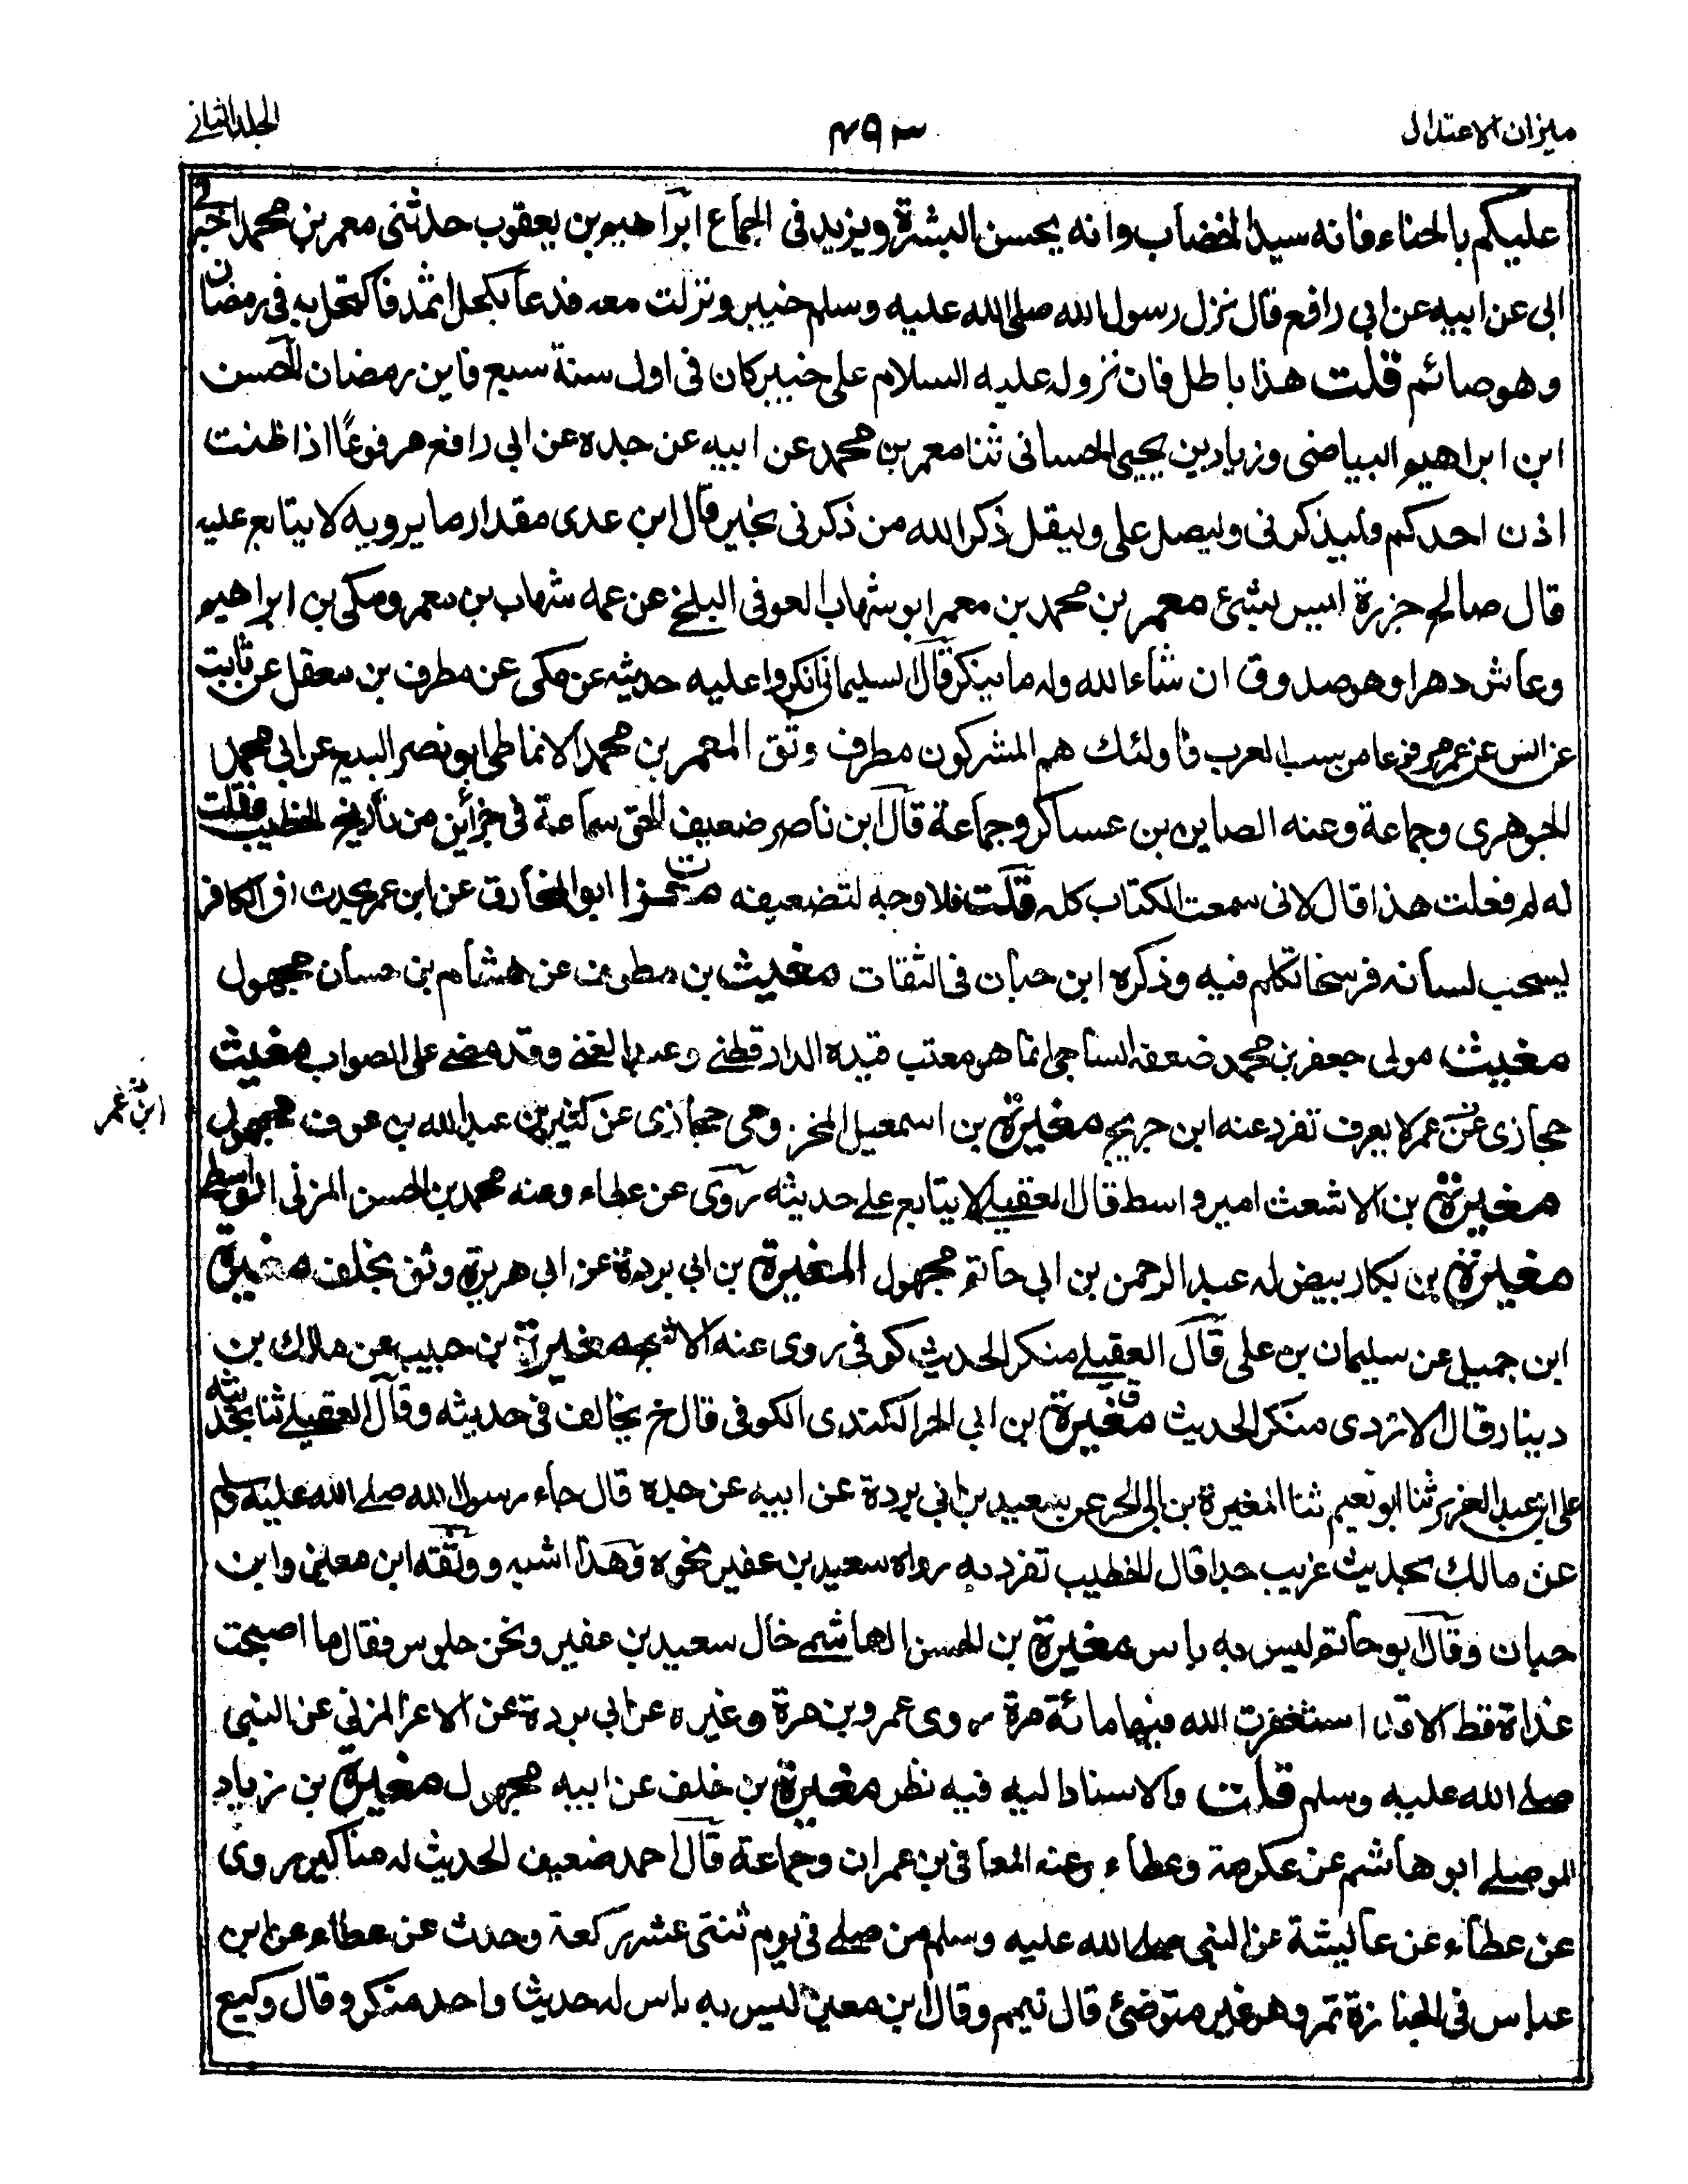 ميزان الاعتدال
٤٩٣
الجلد الثاني
عليكم بالحناء فانه سيد الخضاب وانه يحسن البشرة ويزيد فى الجماع ابراهيم بن يعقوب حدثنى معمر بن محمد اخبرنى
ابى عن ابيه عن ابى رافع قال نزل رسول الله صلى الله عليه وسلم خيبر ونزلت معه فدعا بكحل اثمد فاكتحل به فى رمضان
وهو صائم قلت هذا باطل فان نزوله عليه السلام على خيبر كان فى اول سنة سبع فاين رمضان الحسن
ابن ابراهيم البياضى وزياد بن يحيى الحسانى ثنا معمر بن محمد عن ابيه عن جده عن ابى رافع مرفوعًا اذا طنت
اذن احدكم فليذكرنى وليصل على وليقل ذكر الله من ذكرنى بخير قال ابن عدى مقدار ما يرويه لا يتابع عليه
قال صالح جزرة ليس بشئ معمر بن محمد بن معمر ابو شهاب العوفى البلخى عن عمه شهاب بن معمر ومكى بن ابراهيم
وعاش دهرا وهو صدوق ان شاء الله وله ما ينكر قال السليمانى انكروا عليه حديثه عن مكى عن مطرف بن معقل عن ثابت
عن انس عن عمر مرفوعا من سب العرب فاولئك هم المشركون مطرف وثق المعمر بن محمد الانماطى ابو نصر البيع عن ابى محمد
الجوهرى وجماعة وعنه الصاين بن عساكر وجماعة قال ابن ناصر ضعيف الحق سماعة فى جزأين من تاريخ الخطيب فقلت
له لم فعلت هذا قال لانى سمعت الكتاب كله قلت فلا وجه لتضعيفه مغرا ابو المخارق عن ابن عمر بحديث ان الكافر
ليسحب لسانه فرسخا تكلم فيه وذكره ابن حبان فى الثقات مغيث بن مطرف عن هشام بن حسان مجهول
مغيث مولى جعفر بن محمد ضعفه الساجى انما هو معتب قيده الدارقطنى وعبد الغنى وقد مضى على الصواب مغيث
حجازى عن عمر لا يعرف تفرد عنه ابن جريج مغيرة بن اسمعيل المخزومى حجازى عن كثير بن عبد الله بن عوف مجهول
ابن عمر
مغيرة بن الاشعث امير واسط قال العقيلى لا يتابع على حديثه روى عن عطاء وعنه محمد بن الحسن المزنى الواسطى
مغيرة بن بكار بيض له عبد الرحمن بن ابى حاتم مجهول المغيرة بن ابى بردة عن ابى هريرة وثق بخلف مغيرة
ابن جميل عن سليمان بن على قال العقيلى منكر الحديث كوفى روى عنه الاشج مغيرة بن حبيب عن مالك بن
دينار قال الازدى منكر الحديث مغيرة بن ابى الحر الكندى الكوفى قال خ يخالف فى حديثه وقال العقيلى ثنا بحديثه
على ابن عبد العزيز ثنا ابو نعيم ثنا المغيرة بن ابى الحر عن سعيد بن ابى بردة عن ابيه عن جده قال جاء رسول الله صلى الله عليه وسلم
عن مالك بحديث غريب جدا قال الخطيب تفرد به رواه سعيد بن عفير نحوه وهذا اشبه ووثقه ابن معين وابن
حبان وقال ابو حاتم ليس به باس مغيرة بن الحسن الهاشمى خال سعيد بن عفير ونحن جلوس فقال ما اصبحت
غداة قط الا قد استغفرت الله فيها مائة مرة روى عمرو بن مرة وغيره عن ابى بردة عن الاغر المزنى عن النبى
صلى الله عليه وسلم قلت والاسناد اليه فيه نظر مغيرة بن خلف عن ابيه مجهول مغيرة بن زياد
الموصلى ابو هاشم عن عكرمة وعطاء وعنه المعافى بن عمران وجماعة قال احمد ضعيف الحديث له مناكير روى
عن عطاء عن عائشة عن النبى صلى الله عليه وسلم من صلى فى يوم ثنتى عشر ركعة وحدث عن عطاء عن ابن
عباس فى الجنازة تمر وهو غير متوضئ قال تيمم وقال ابن معين ليس به باس له حديث واحد منكر وقال وكيع